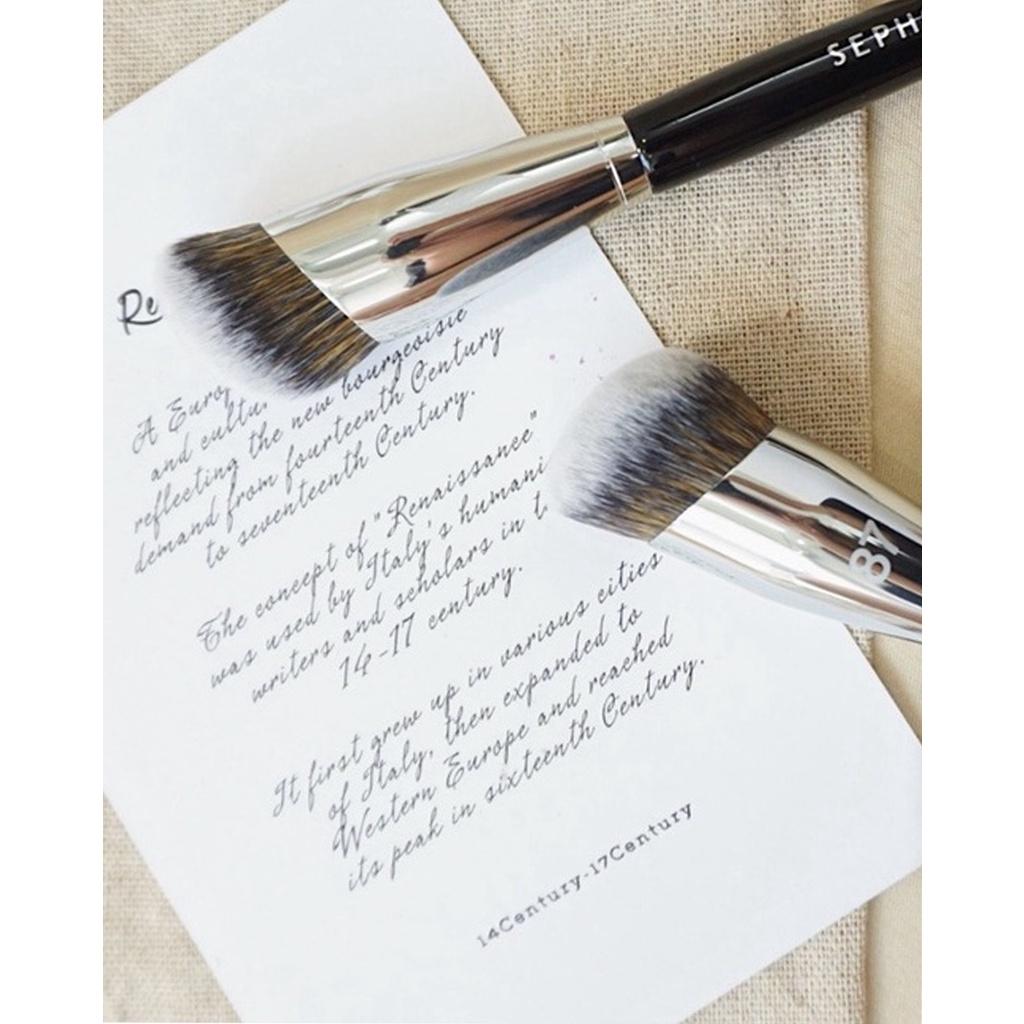 SEPH
Re
A Europ
and cultu
reflecting the new bourgeoisie
demand from fourteenth Century
to seventeenth Century.
The concept of "Renaissance"
was used by Italy's humani
writers and scholars in t
14-17 century.
87
It first grew up in various cities
of Italy, then expanded to
Western Europe and reached
its peak in sixteenth Century.
14Century-17Century